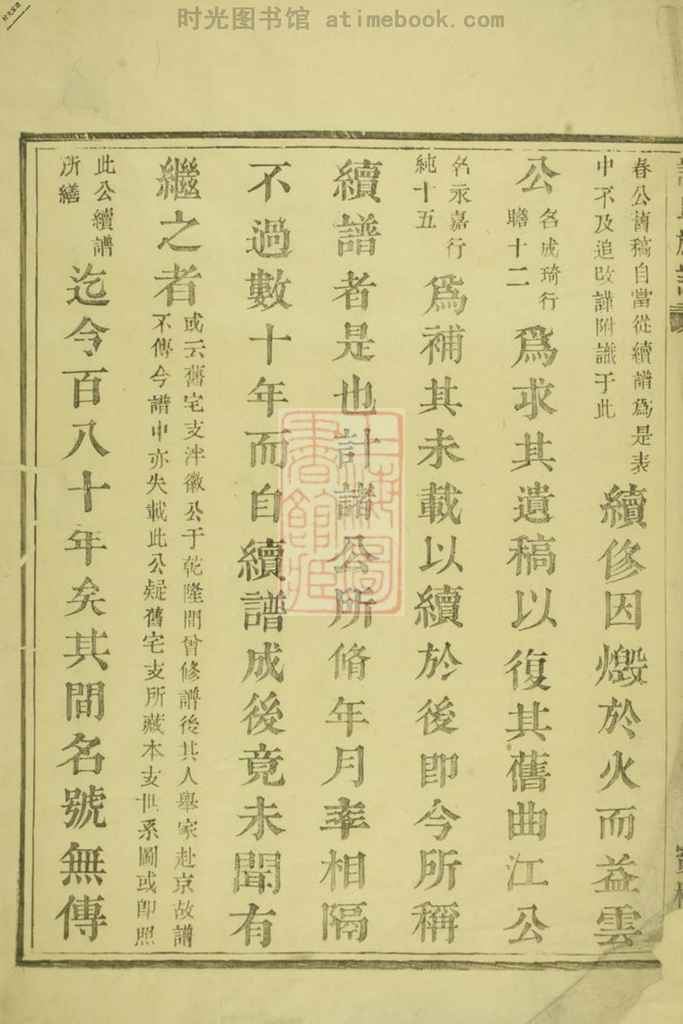 时光图书馆 atimebook.com
春公舊稿自當從續譜爲是表
中不及追改謹附識于此
續修因燬於火而益雲
公
名成琦行
瞻十二
爲求其遺稿以復其舊曲江公
名永嘉行
純十五
爲補其未載以續於後即今所稱
續譜者是也計諸公所脩年月率相隔
不過數十年而自續譜成後竟未聞有
繼之者
或云舊宅支津徽公于乾隆間曾修譜後其人舉家赴京故譜
不傳今譜中亦失載此公疑舊宅支所藏本支世系圖或即照
此公續譜
所繕
迄今百八十年矣其間名號無傳